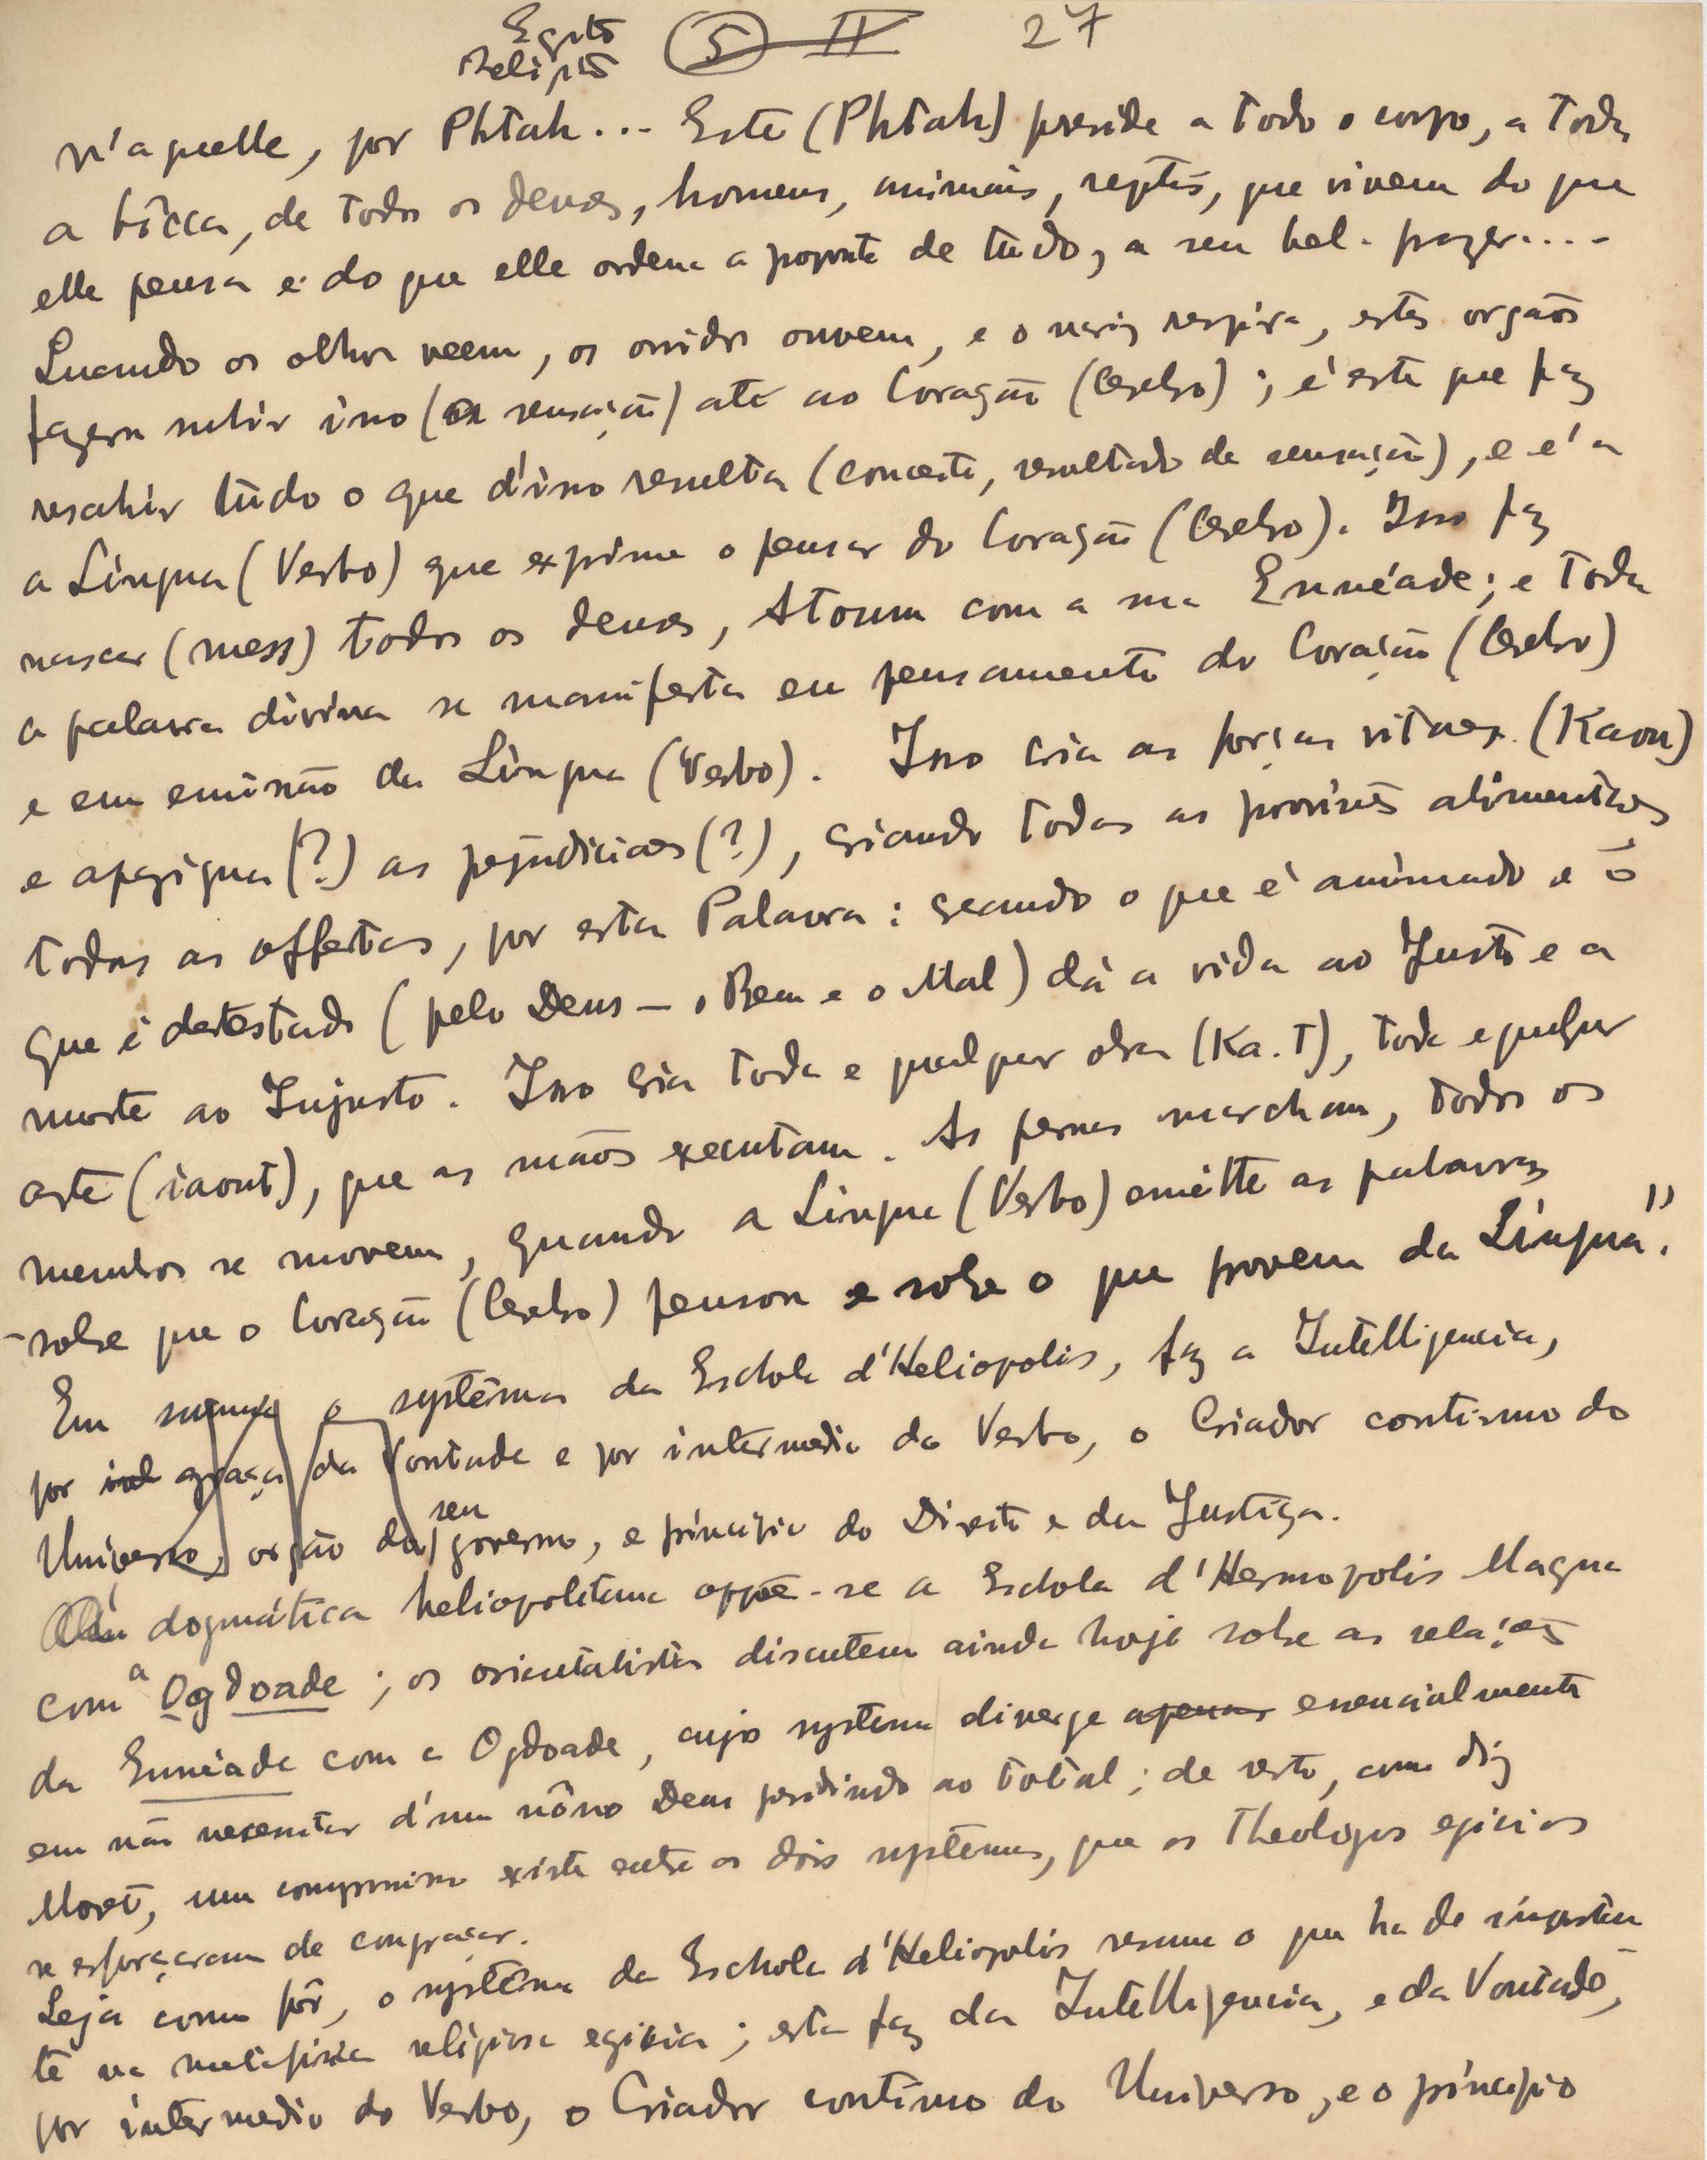 Egito 5 II 27
Religião
n'aquelle, por Phtah... Este (Phtah) preside a todo o corpo, a toda
a bôcca, de todos os deuses, homens, animais, reptis, que vivem do que
elle pensa e do que elle ordena a proposito de tudo, a seu bel-prazer....
Quando os olhos veem, os ouvidos ouvem, e o nariz respira, estes orgãos
fazem subir isso (a sensação) até ao Coração (Cerebro); é este que faz
resahir tudo o que d'isso resulta (conceito, resultado da sensação), e é a
a Lingua (Verbo) que exprime o pensar do Coração (Cerebro). Isso faz
nascer (mess) todos os deuses, Atoum com a sua Ennéade; e toda
a palavra divina se manifesta em pensamento do Coração (Cerebro)
e em emissão da Lingua (Verbo). Isso cria as forças vitaes (Kaou)
e apazigua (?) as prejudiciaes (?), criando todas as provisões alimentares
todas as offertas, por esta Palavra: creando o que é animado e o
que é detestado (pelo Deus – o Bem e o Mal) dá a vida ao Justo e a
morte ao Injusto. Isso cria toda e qualquer obra (Ka.T), toda e qualquer
arte (iaout), que as mãos executam. As pernas marcham, todos os
membros se movem, quando a Lingua (Verbo) emitte as palavras
sobre que o Coração (Cerebro) pensou e sobre o que provem da Lingua".
Em summa o systêma da Eschola d'Heliopolis, faz a Intelligencia,
por graça da Vontade e por intermedio do Verbo, o Criador contisuo do
Universo, orgão do seu governo, e principio do Direito e da Justiça.
dogmática heliopolitana oppõe-se a Eschola d'Hermopolis Magna
com a Ogdoade; os orientalistas discutem ainda hoje sobre as relações
da Ennéade com a Ogdoade, cujo systema diverge apenas essencialmente
em não necessitar d'um nôno Deus presidindo ao total; de resto, como diz
Moret, um compromisso existe entre os dois systemas, que os Theologos egicios
se esforçaram de congraçar.
Seja como fôr, o systêma da Eschola d'Heliopolis resume o que ha de importan
te na metafisica religiosa egicia; esta faz da Intelligencia, e da Vontade,
por intermedio do Verbo, o Criador contisuo do Universo, e o principio